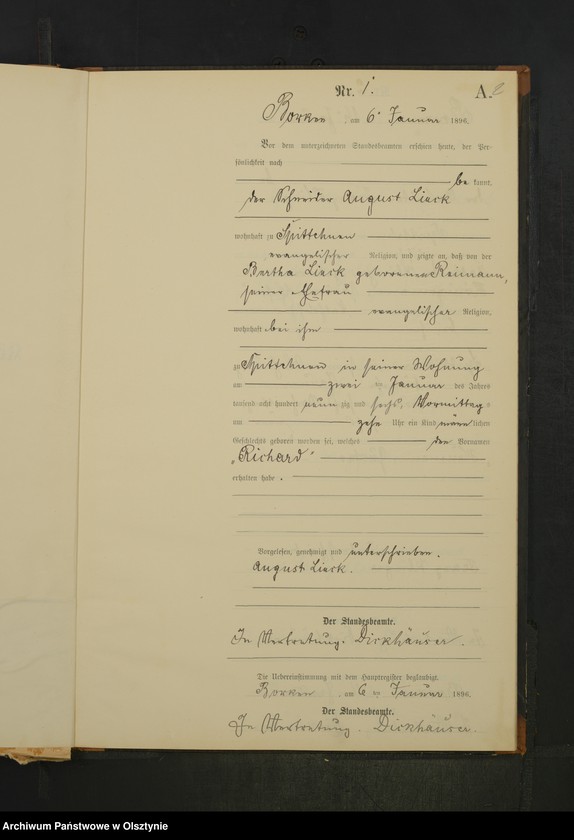 Nr. 1.
A.
Borken am 6ᵗ Januar 1896.
Vor dem unterzeichneten Standesbeamten erschien heute, der Per-
sönlichkeit nach
be kannt,
der Schneider August Lieck
wohnhaft zu Spittehnen
evangelischer Religion, und zeigte an, daß von der
Bertha Lieck geborenen Reimann,
seiner Ehefrau
evangelischer Religion,
wohnhaft bei ihm
zu Spittehnen in seiner Wohnung
am zwei ten Januar des Jahres
tausend acht hundert neun zig und sechs, Vormittag
um zehn Uhr ein Kind männlichen
Geschlechts geboren worden sei, welches den Vornamen
„Richard“
erhalten habe.
Vorgelesen, genehmigt und unterschrieben.
August Lieck.
Der Standesbeamte.
In Vertretung. Dickhäuser.
Die Uebereinstimmung mit dem Hauptregister beglaubigt.
Borken am 6 ten Januar 1896.
Der Standesbeamte.
In Vertretung. Dickhäuser.
Archiwum Państwowe w Olsztynie